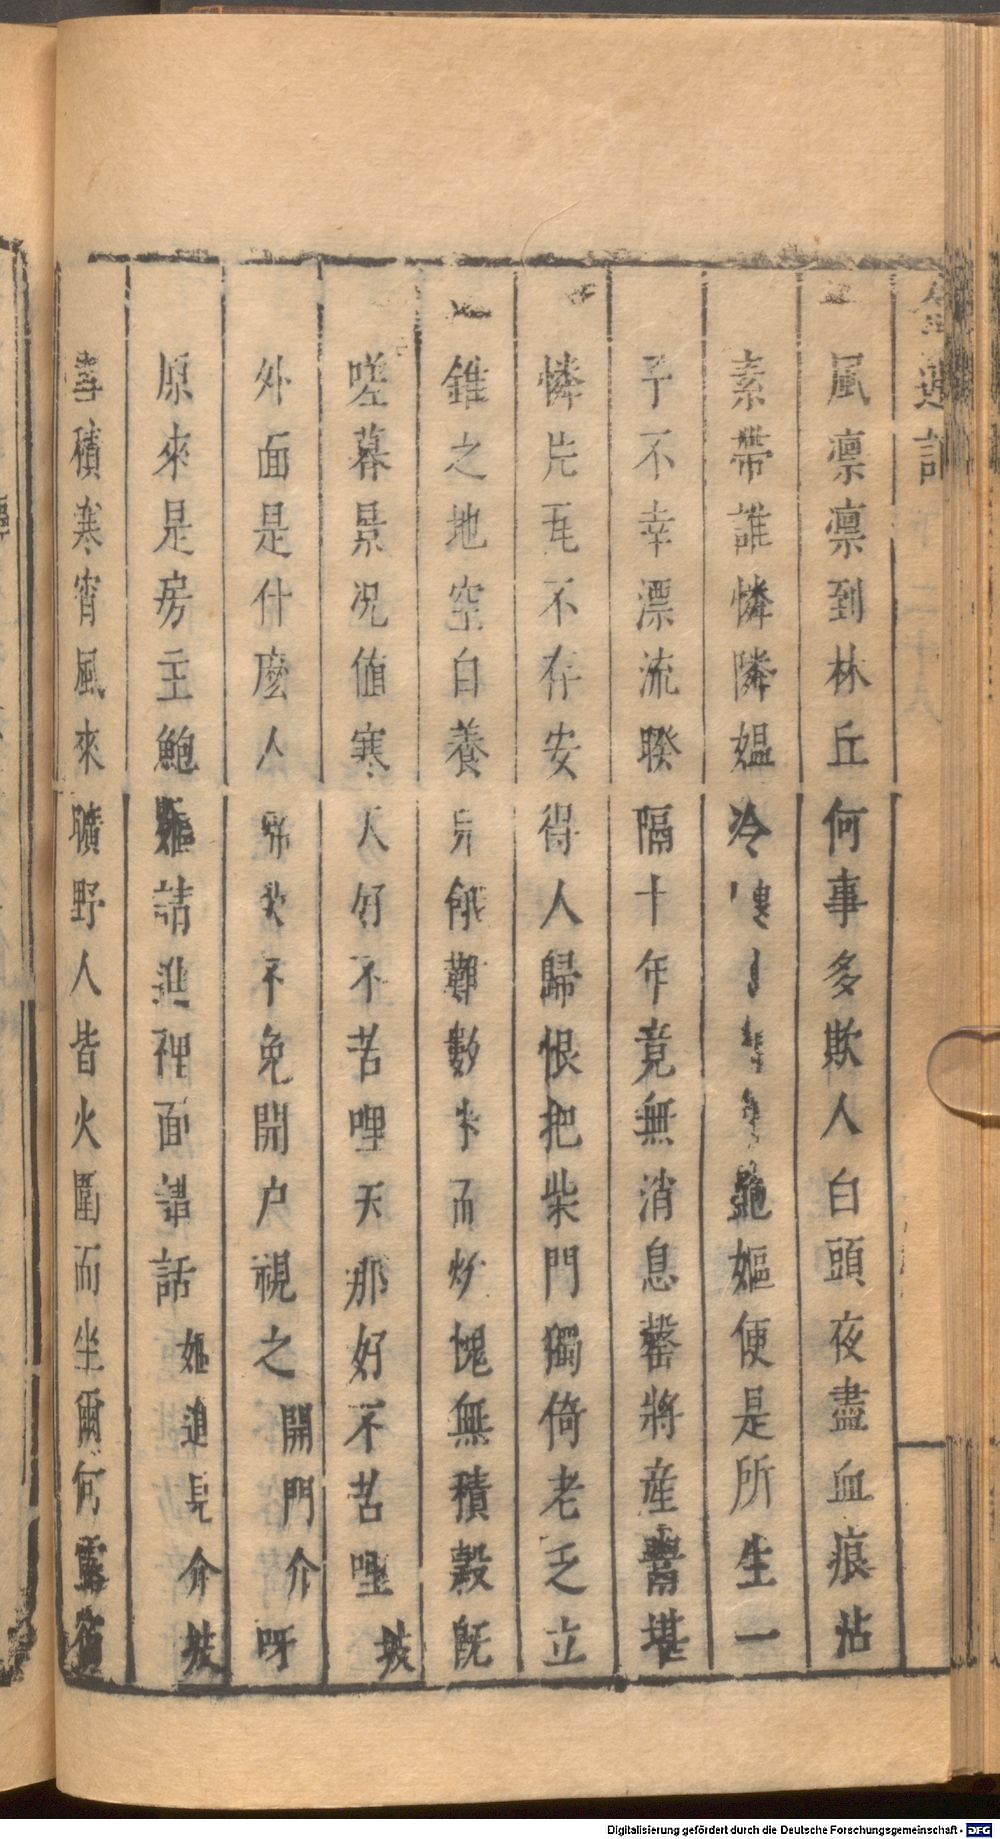 風凛凛到林丘何事多欺人白頭夜盡血痕沾
素帶誰憐隣媼冷嫗便是所生一
子不幸漂流暌隔十年竟無消息罄將産鬻堪
憐片瓦不存安得人歸恨把柴門獨倚老乏立
錐之地空自養身餓難數米而炒愧無積穀既
嗟暮景况值寒人好不苦哩天那好不苦哩
外面是什麽人不免開户視之開門介呀
原來是房主鮑嫗請進裡面講話嫗進見介
積寒宵風來曠野人皆火圍而坐爾何露宿
Digitalisierung gefördert durch die Deutsche Forschungsgemeinschaft - DFG